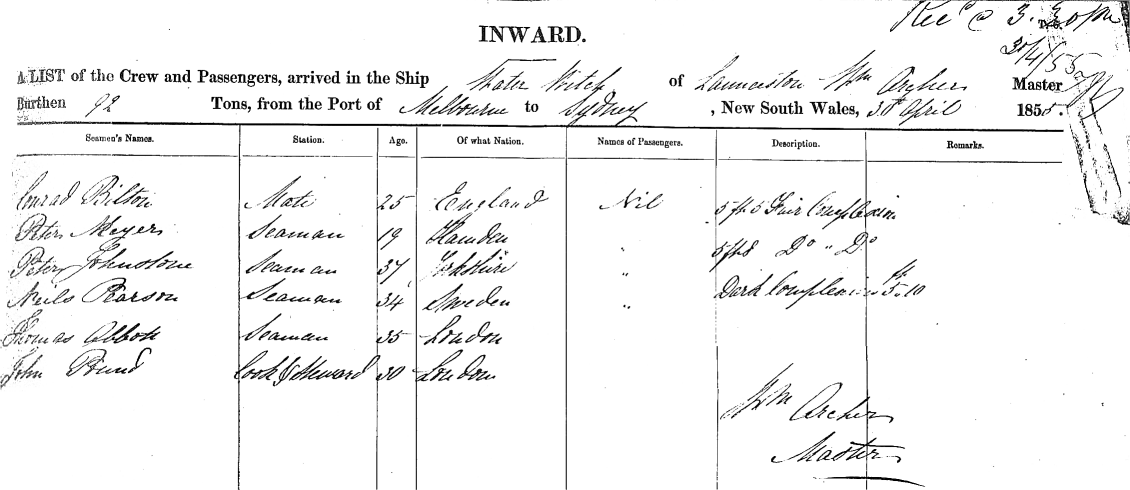 Rec'd @ 3.30 pm
30/4/55
INWARD.
A LIST of the Crew and Passengers, arrived in the Ship Water Witch of Launceston Wm Archer Master
Burthen 92 Tons, from the Port of Melbourne to Sydney, New South Wales, 30th April 1855.
Seamen's Names. Station. Age. Of what Nation. Names of Passengers. Description. Remarks.
Conrad Bilton Mate 25 England Nil 5 ft 5 Fair Complexion
Peter Meyers Seaman 19 " 5 ft 8 Do " Do
Peter Johnstone Seaman 37 Yorkshire "
Neils Pearson Seaman 34 Sweden " Dark Complexion ft 5.10
Thomas Abbott Seaman 35 London
John Pound Cook & Steward 30 London
Wm Archer
Master